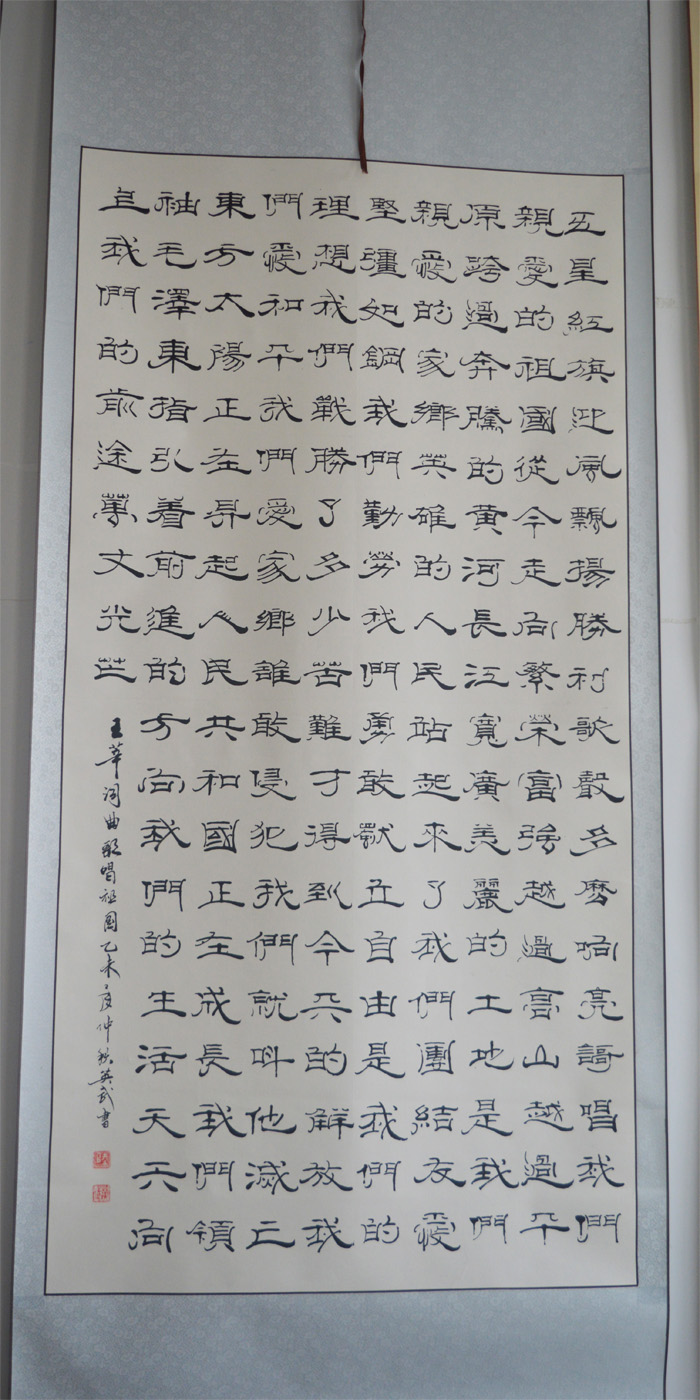 五星紅旗迎風飄揚勝利歌聲多麼响亮謌唱我們
親愛的祖國從今走向繁榮富強越過高山越過平
原跨過奔騰的黃河長江寬廣美麗的土地是我們
親愛的家鄉英雄的人民站起來了我們團結友愛
堅彊如鋼我們勤勞我們勇敢獨立自由是我們的
理想我們戰勝了多少苦難才得到今天的解放我
們愛和平我們愛家鄉誰敢侵犯我們就叫他滅亡
東方太陽正在升起人民共和國正在成長我們領
袖毛澤東指引着前進的方向我們的生活天天向
上我們的前途萬丈光芒
王莘词曲歌唱祖国乙未仲秋英武書